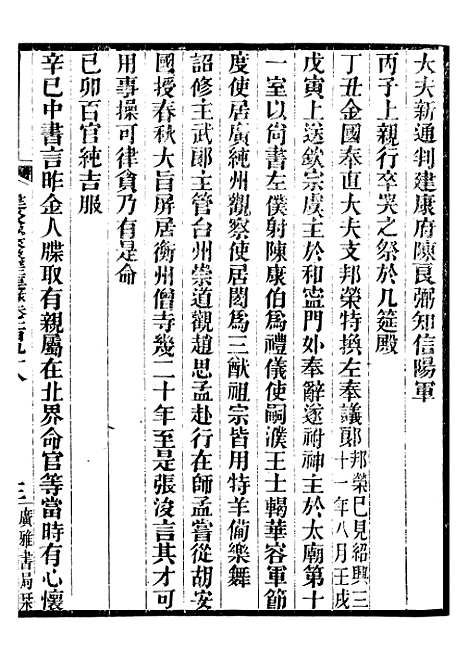 大夫新通判建康府陳良弼知信陽軍
丙子上親行卒哭之祭於几筵殿
丁丑金國奉直大夫支邦榮特換左奉議郞邦榮已見紹興三
十一年八月壬戌
戊寅上送欽宗虞主於和寍門外奉辭遂祔神主於太廟第十
一室以尙書左僕射陳康伯爲禮儀使嗣濮王士輵華容軍節
度使居廣純州觀察使居閎爲三猷祖宗皆用特羊僃樂舞
詔修主武郞主管台州崇道觀趙思孟赴行在師孟嘗從胡安
國授春秋大旨屏居衡州僧寺幾二十年至是張浚言其才可
用事操可律貪乃有是命
己卯百官純吉服
辛巳中書言昨金人牒取有親屬在北界命官等當時有心懷
三
廣雅書局栞